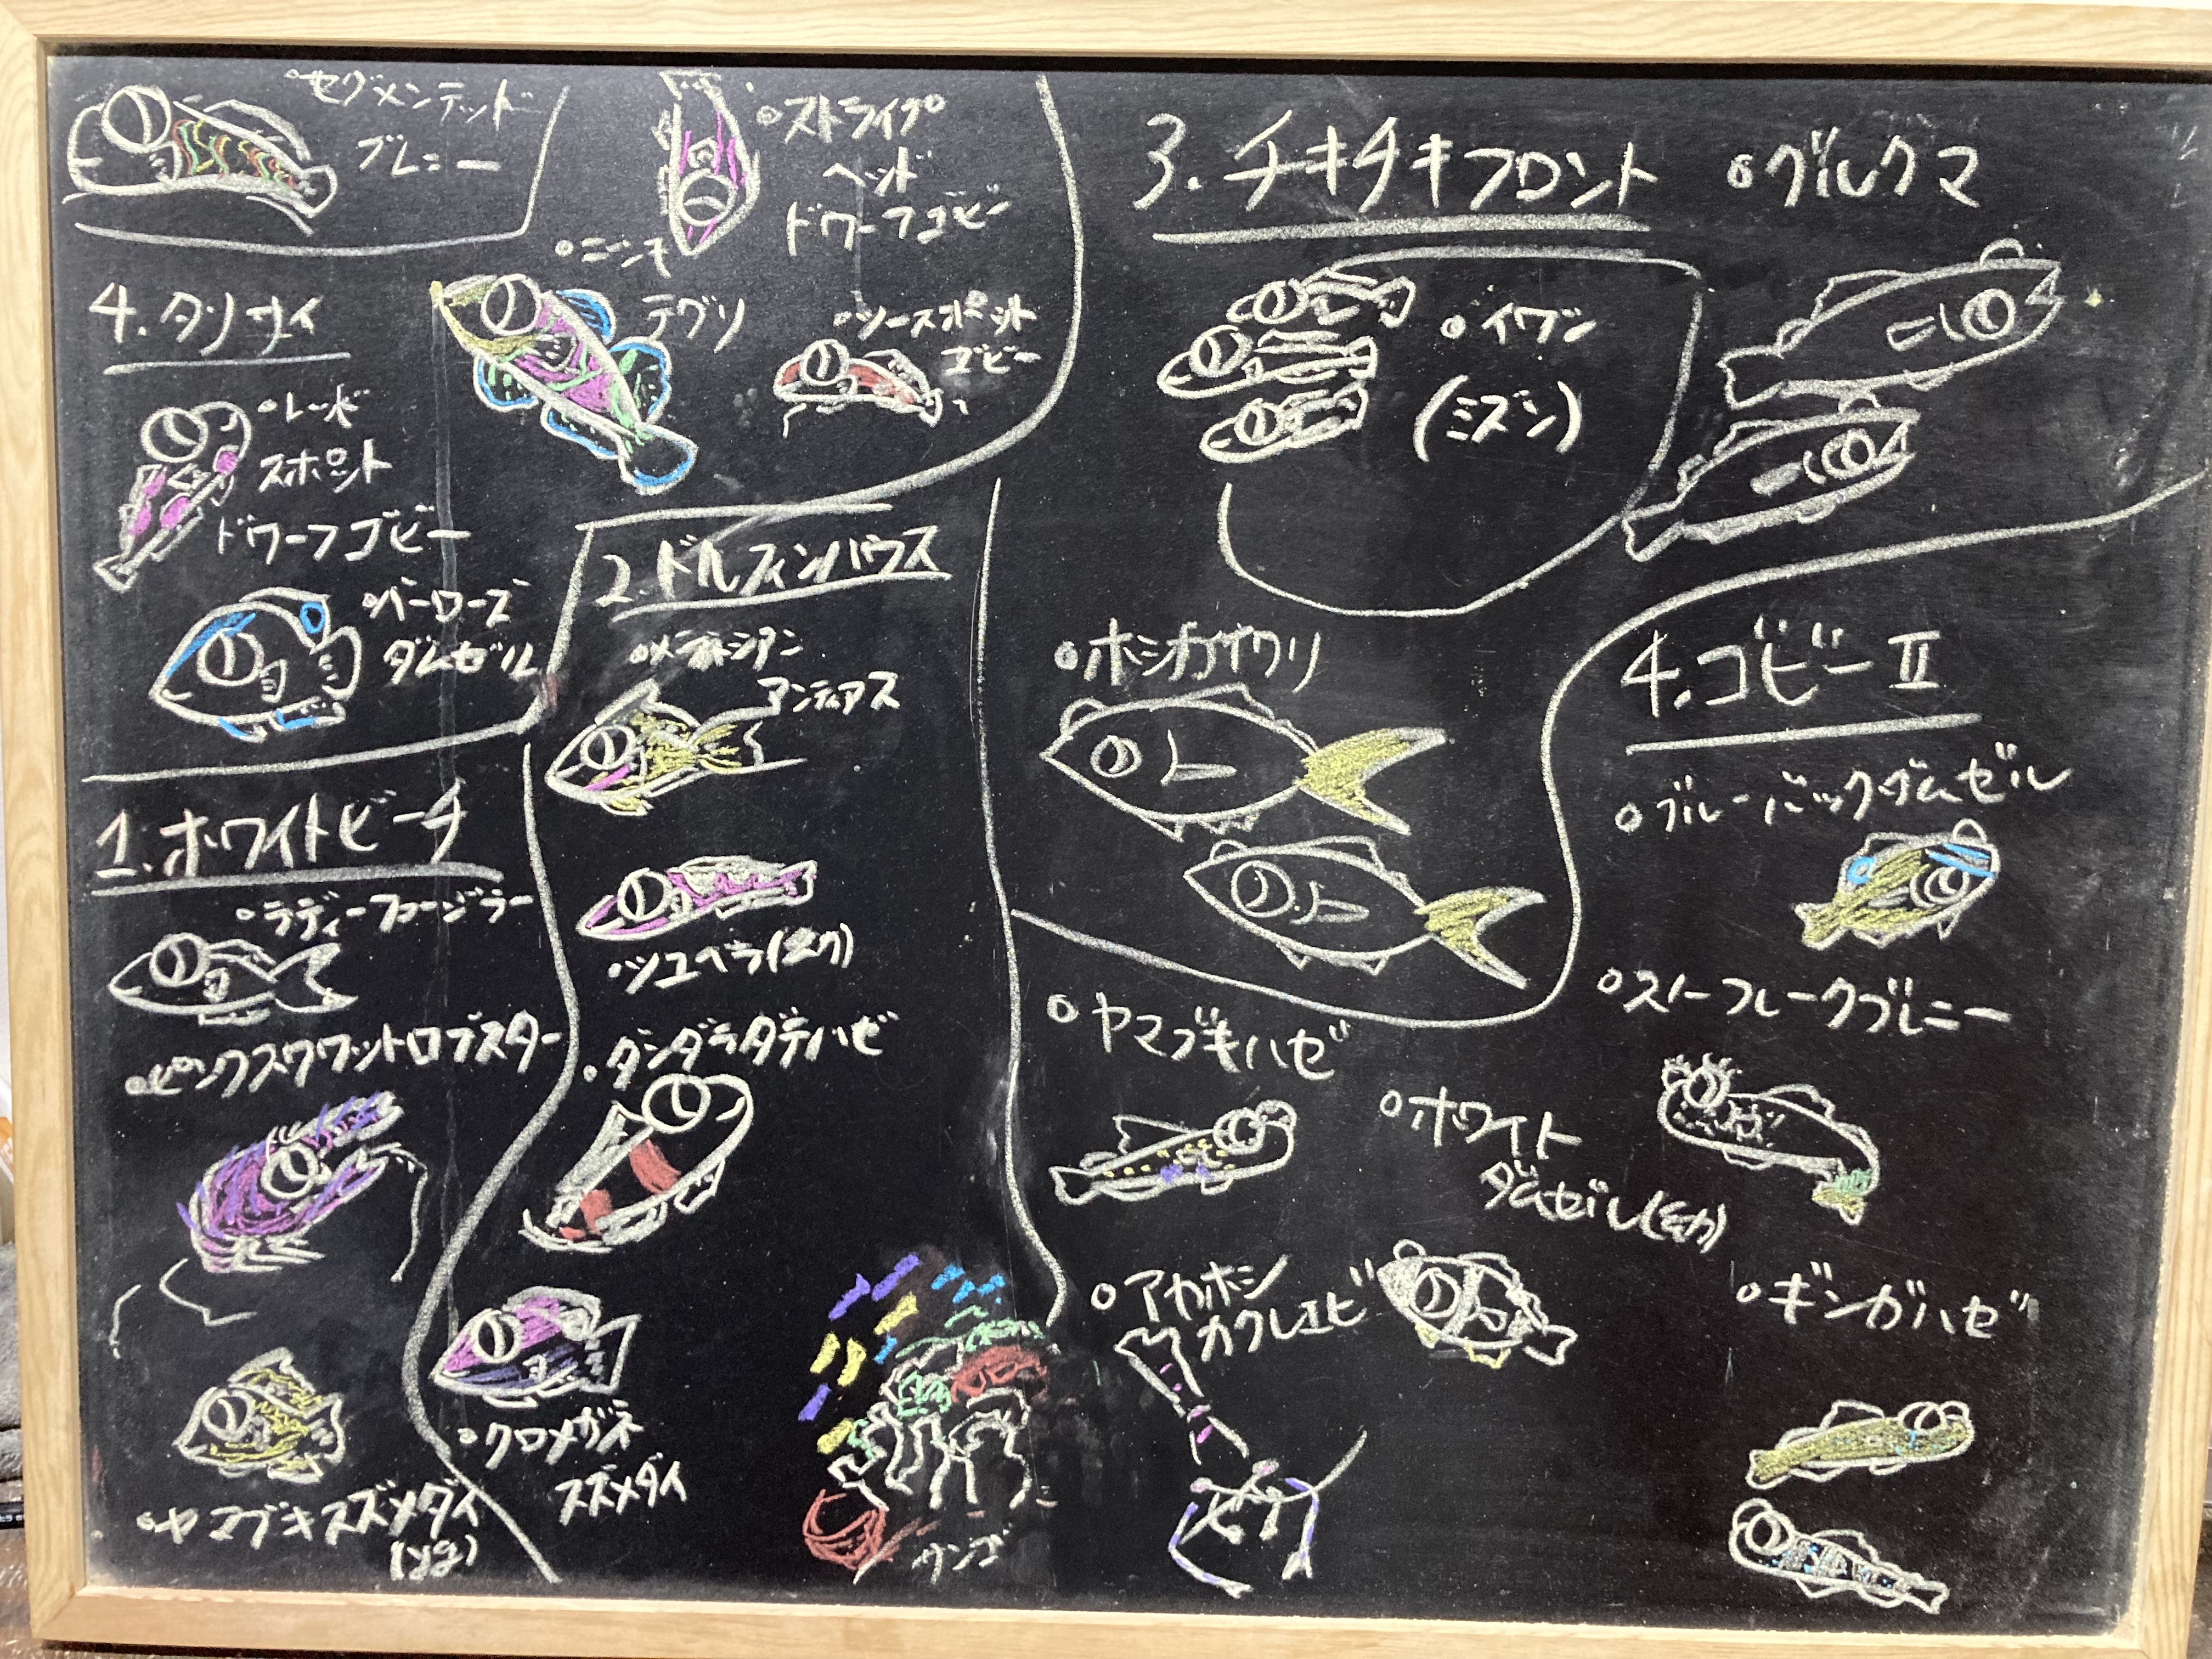 セグメンテッド
ブレニー
ストライプ
ヘッド
ドワーフゴビー
ニシキ
テグリ
ツースポット
ゴビー
4.タリサイ
レッド
スポット
ドワーフゴビー
バーローズ
ダムゼル
1.ホワイトビーチ
ラディーフュージラー
ピンクスクワットロブスター
ヤマブキスズメダイ
(yg)
2.ドルフィンハウス
メラネシアン
アンティアス
ツユベラ(幼)
ダンダラダテハゼ
クロメガネ
スズメダイ
サンゴ
3.チキチキフロント
グルクマ
イワシ
(ミズン)
ホシカイワリ
4.ゴビーⅡ
ブルーバックダムゼル
スノーフレークブレニー
ヤマブキハゼ
ホワイト
ダムゼル(幼)
アカホシ
カクレエビ
ギンガハゼ